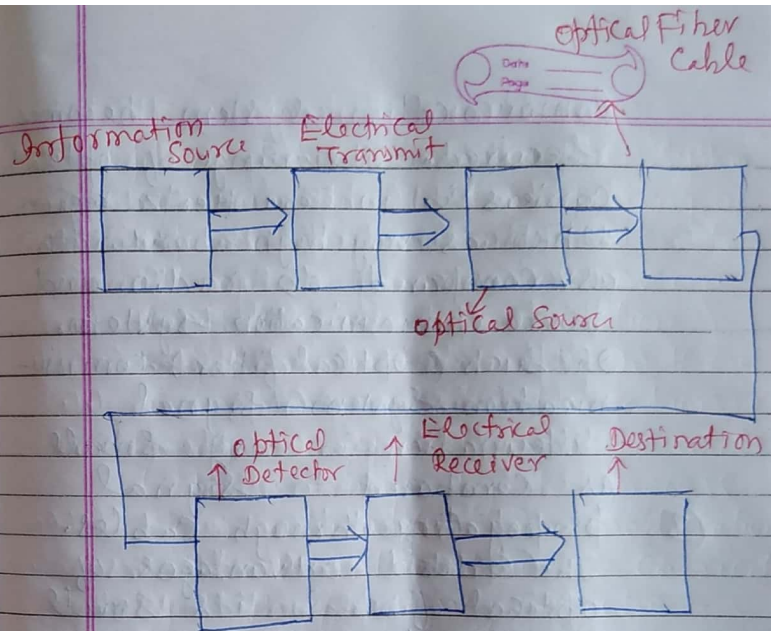 Optical Fiber
Cable
Date
Page
Information
Source
Electrical
Transmit
Optical Source
Optical
Detector
Electrical
Receiver
Destination